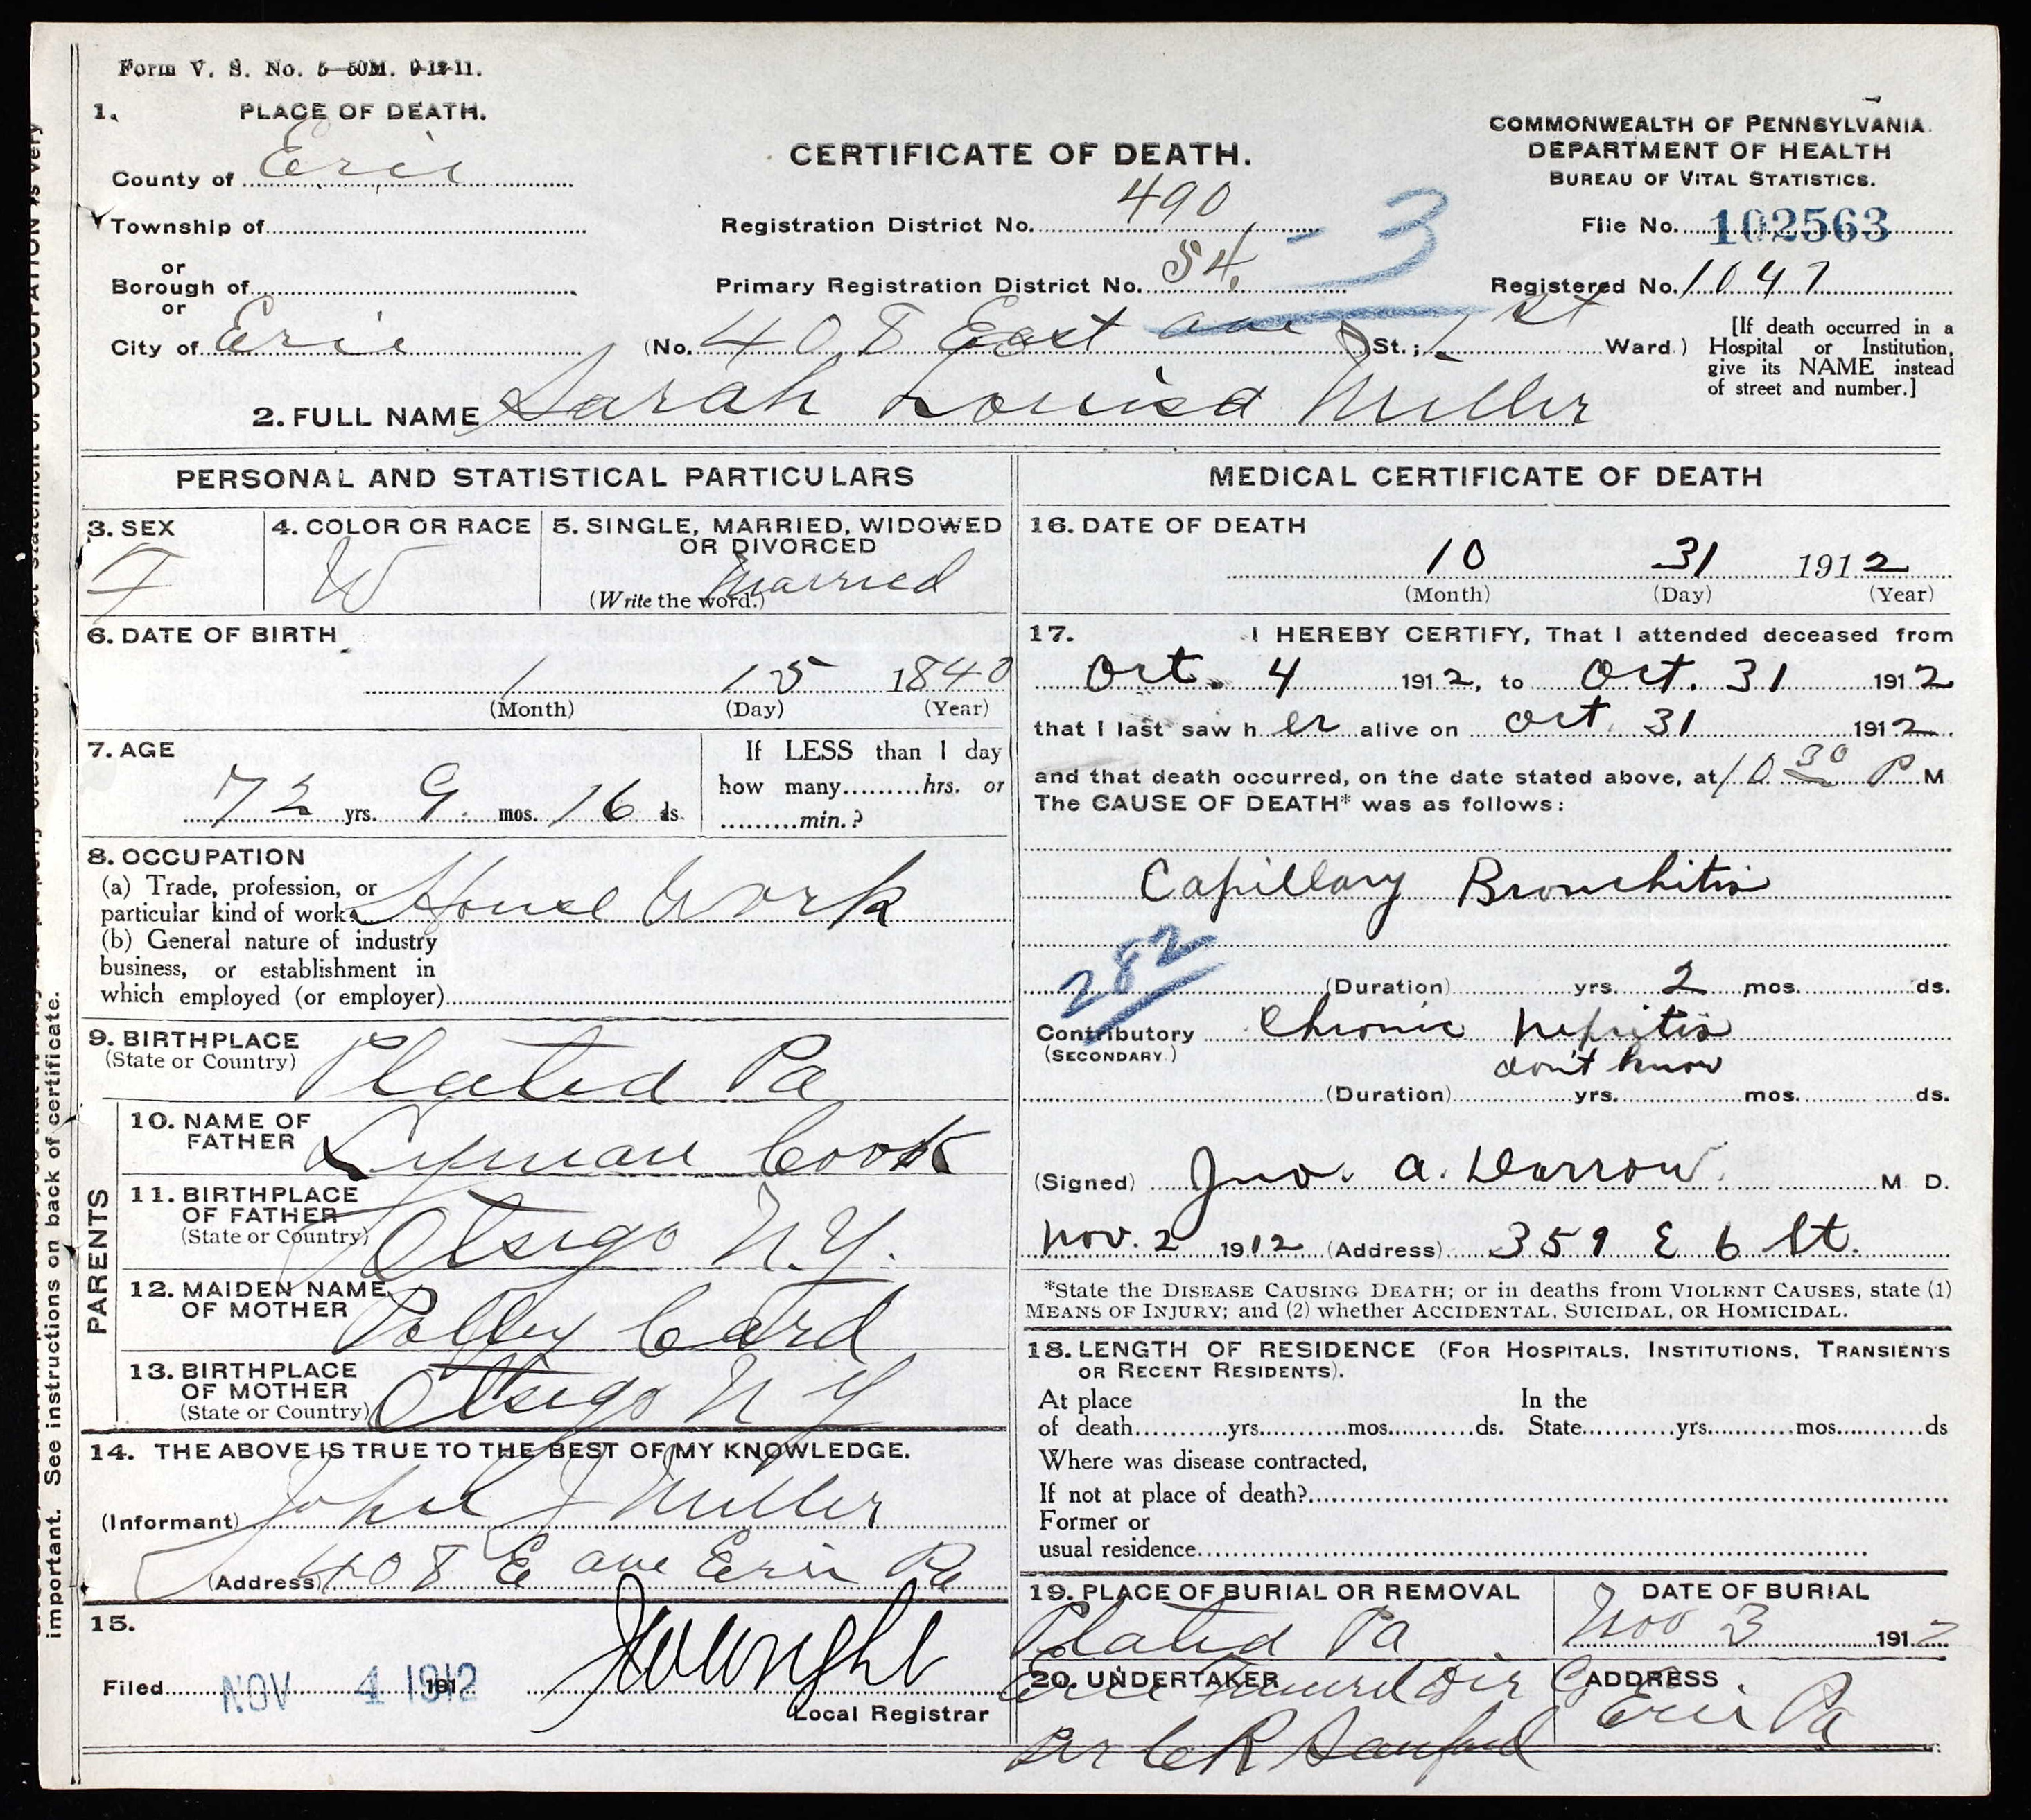 Form V. S. No. 5—50M. 9-12-11.
1. PLACE OF DEATH.
County of Erie
Township of
or
Borough of
or
City of Erie
CERTIFICATE OF DEATH.
Registration District No. 490
Primary Registration District No. 84
- 3
COMMONWEALTH OF PENNSYLVANIA.
DEPARTMENT OF HEALTH
BUREAU OF VITAL STATISTICS.
File No. 102563
Registered No. 1047
(No. 408 East ave St.; 1st Ward)
[If death occurred in a
Hospital or Institution,
give its NAME instead
of street and number.]
2. FULL NAME Sarah Louisa Miller
PERSONAL AND STATISTICAL PARTICULARS
3. SEX
F
4. COLOR OR RACE
W
5. SINGLE, MARRIED, WIDOWED
OR DIVORCED
(Write the word.) Married
6. DATE OF BIRTH
1 15 1840
(Month) (Day) (Year)
7. AGE
72 yrs. 9 mos. 16 ds.
If LESS than 1 day
how many.........hrs. or
.........min.?
8. OCCUPATION
(a) Trade, profession, or
particular kind of work House Work
(b) General nature of industry
business, or establishment in
which employed (or employer)
9. BIRTHPLACE
(State or Country) Platea Pa
PARENTS
10. NAME OF
FATHER Lyman Cook
11. BIRTHPLACE
OF FATHER
(State or Country) Otsego N.Y.
12. MAIDEN NAME
OF MOTHER Polley Card
13. BIRTHPLACE
OF MOTHER
(State or Country) Otsego N Y
14. THE ABOVE IS TRUE TO THE BEST OF MY KNOWLEDGE.
(Informant) John J Miller
(Address) 408 E ave Erie Pa
15.
Filed NOV 4 1912 191
JWWright
Local Registrar
MEDICAL CERTIFICATE OF DEATH
16. DATE OF DEATH
10 31 1912
(Month) (Day) (Year)
17. I HEREBY CERTIFY, That I attended deceased from
Oct. 4 1912, to Oct. 31 1912
that I last saw her alive on Oct. 31 1912.
and that death occurred, on the date stated above, at 10 30 P M
The CAUSE OF DEATH* was as follows:
Capillary Bronchitis
282
(Duration) yrs. 2 mos. ds.
Contributory Chronic Nefritis
(SECONDARY.) don't know
(Duration) yrs. mos. ds.
(Signed) Jno. A. Darrow M. D.
Nov. 2 1912 (Address) 359 E 6 St.
*State the DISEASE CAUSING DEATH; or in deaths from VIOLENT CAUSES, state (1)
MEANS OF INJURY; and (2) whether ACCIDENTAL, SUICIDAL, OR HOMICIDAL.
18. LENGTH OF RESIDENCE (FOR HOSPITALS, INSTITUTIONS, TRANSIENTS
OR RECENT RESIDENTS).
At place In the
of death...........yrs...........mos..........ds. State...........yrs..........mos..........ds
Where was disease contracted,
If not at place of death?
Former or
usual residence
19. PLACE OF BURIAL OR REMOVAL
Platea Pa
DATE OF BURIAL
Nov 3 1912
20. UNDERTAKER
Erie Funeral Dir Co
Per C R Sanford
ADDRESS
Erie Pa
important. See instructions on back of certificate.